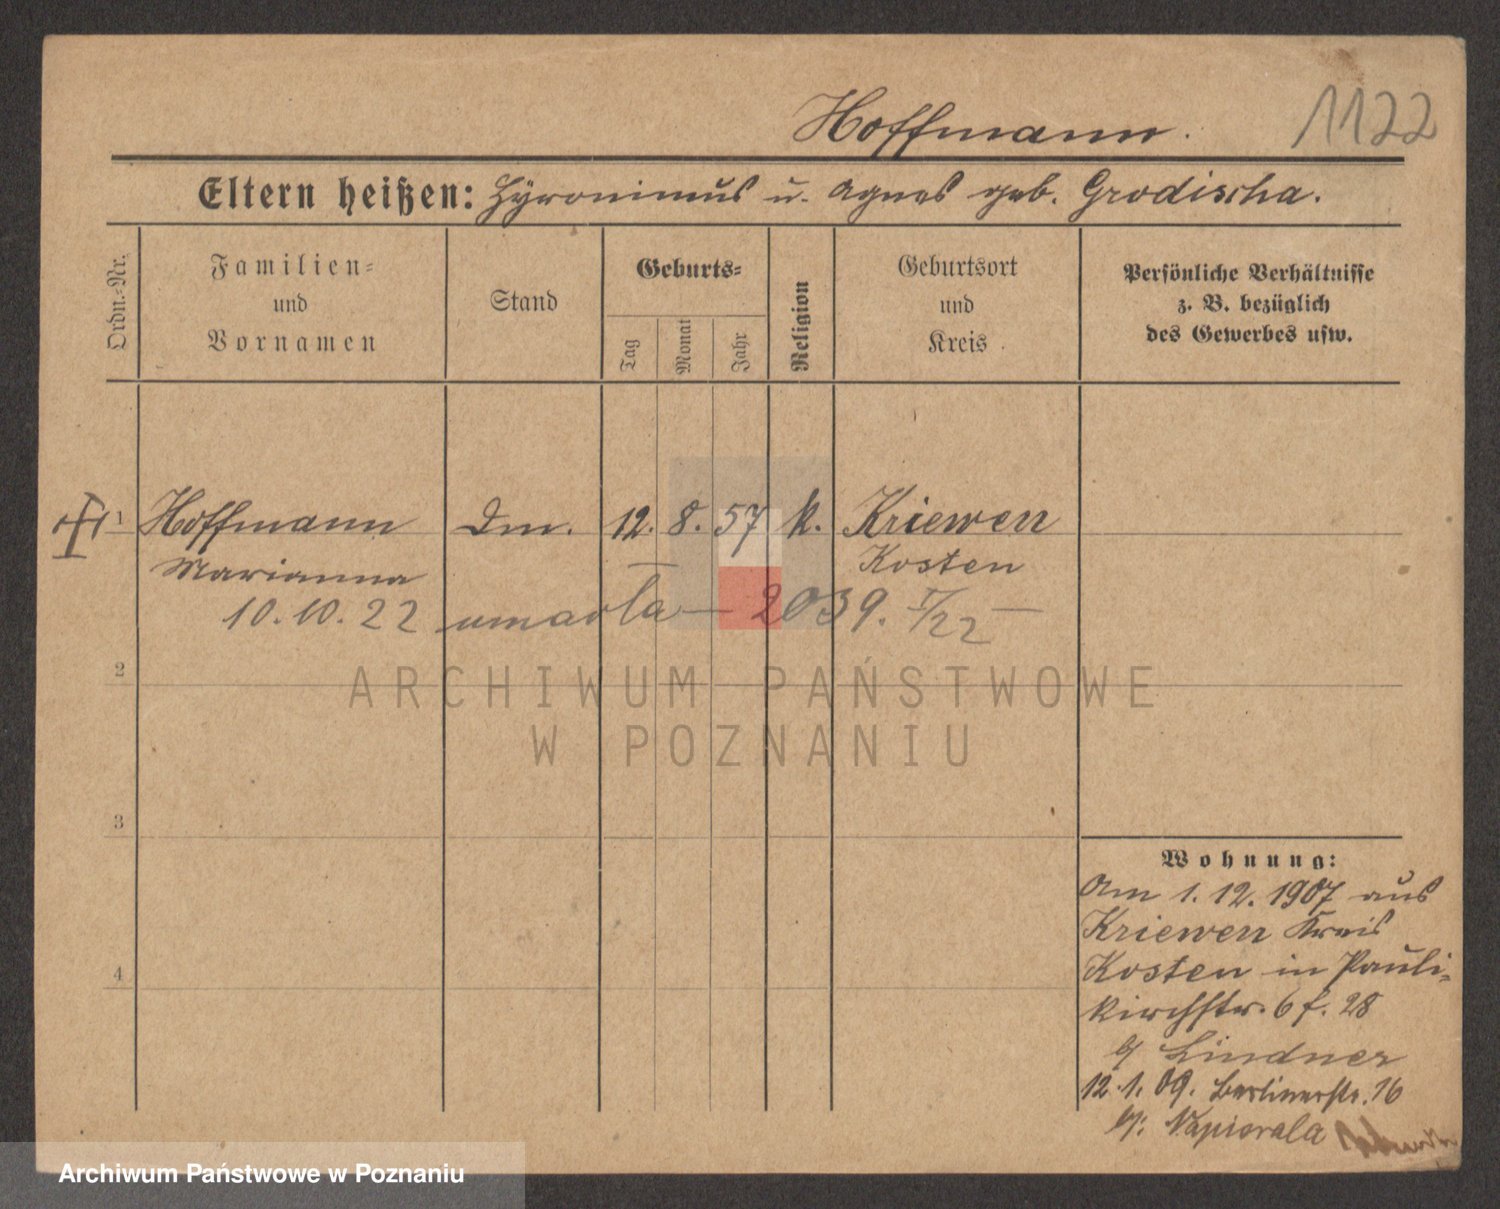 Hoffmann.
1122
Eltern heißen: Hyronimus u. Agnes geb. Grodischa.
Ordn.-Nr.
Familien-
und
Vornamen
Stand
Geburts-
Tag
Monat
Jahr
Religion
Geburtsort
und
Kreis
Persönliche Verhältnisse
z. B. bezüglich
des Gewerbes usw.
1 Hoffmann Dm. 12. 8. 57 k. Kriewen
Marianna Kosten
10.10.22 umarła — 2039. V/22 —
2
ARCHIWUM PAŃSTWOWE
W POZNANIU
3
4
Wohnung:
Am 1.12.1907 aus
Kriewen Kreis
Kosten in Pauli-
kirchstr. 6 f. 28
b/ Lindner
12.1.09. Berlinerstr. 16
b/: Napierala
Archiwum Państwowe w Poznaniu